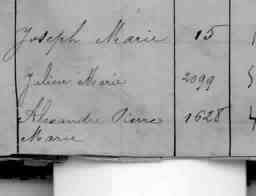 Joseph Marie 15
Julien Marie 2099
Alexandre Pierre 1628
Marie